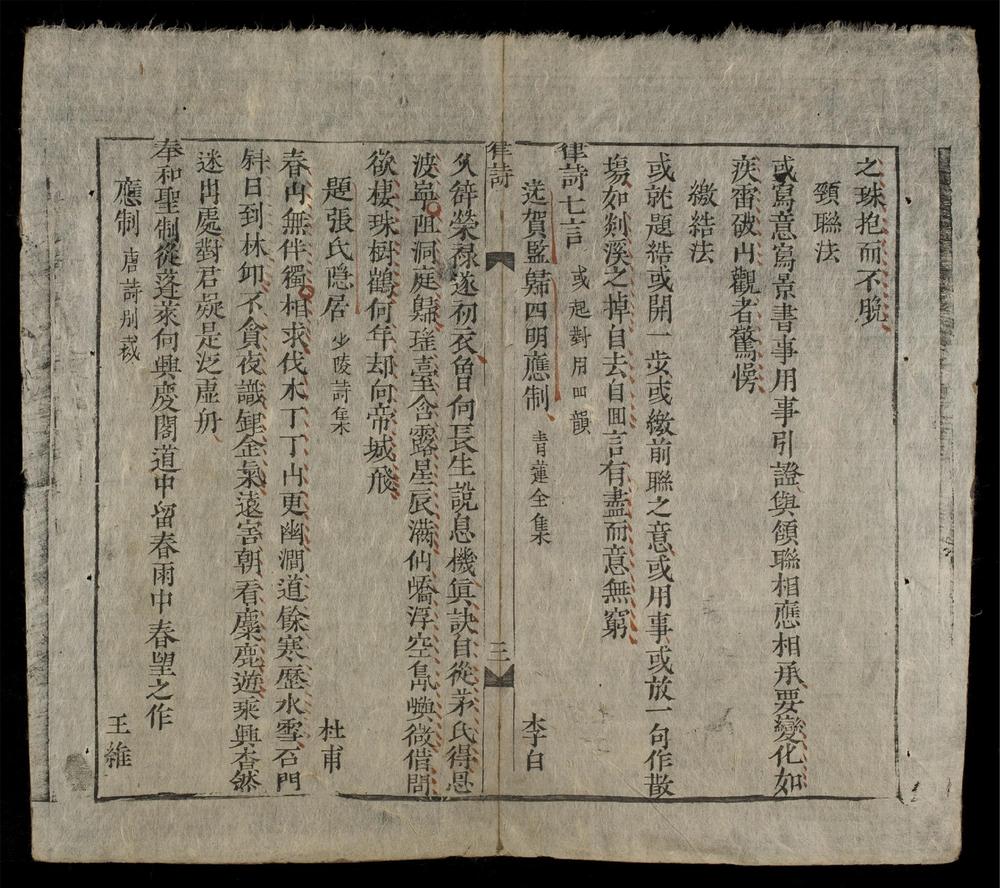 之珠抱而不脫
頸聯法
或寫意寫景書事用事引證與頷聯相應相承要變化如
疾雷破山觀者驚愕
繳結法
或就題結或開一步或繳前聯之意或用事或放一句作散
場如剡溪之掉自去自回言有盡而意無窮
律詩七言 或起對用四韻
送賀監歸四明應制 青蓮全集 李白
久辞榮禄遂初衣曾何長生說息機真訣自從茅氏得恩
波寧阻洞庭歸瑤臺含露星辰滿仙嶠浮空島嶼微借問
欲棲珠樹鶴何年却向帝城飛
題張氏隱居 少陵詩集 杜甫
春山無伴獨相求伐木丁丁山更幽澗道餘寒歷氷雪石門
斜日到林丘不貪夜識金氣遠害朝看麋鹿遊乘興杳然
迷出處對君疑是泛虛舟
奉和聖制從蓬萊向興慶閣道中留春雨中春望之作
應制 唐詩別裁 王維
律詩 三